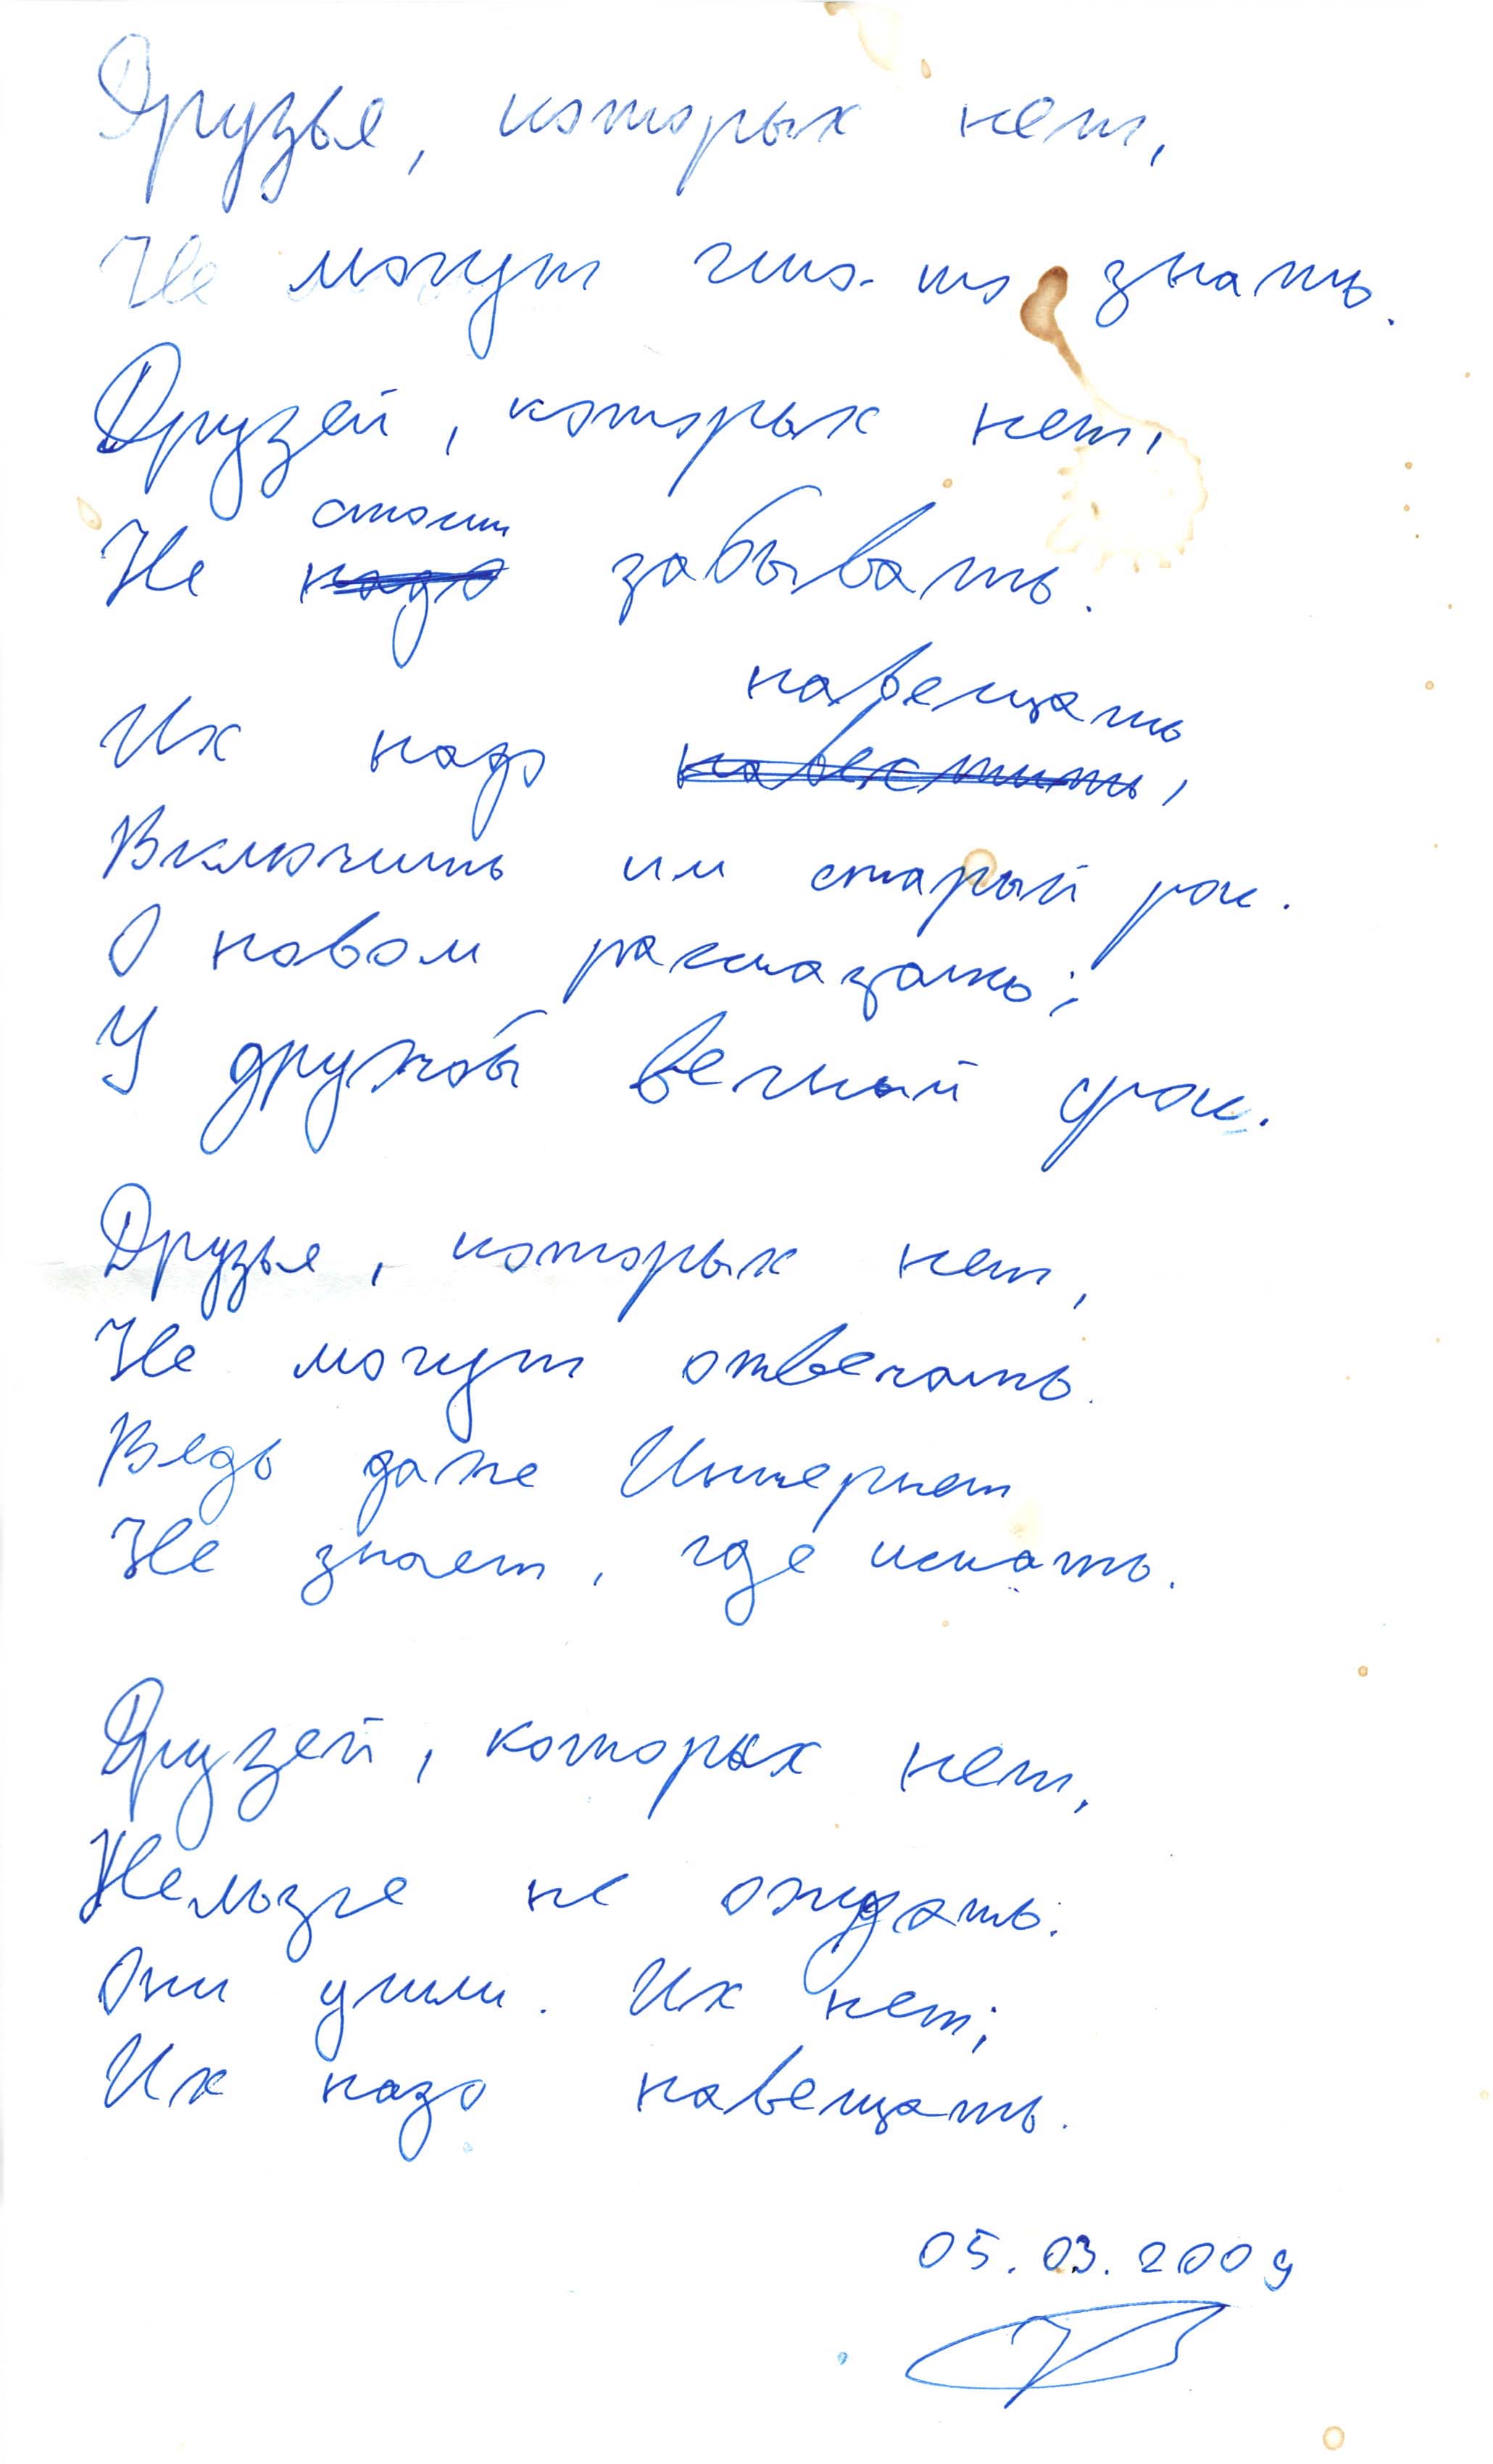 Друзья, которых нет,
Не могут что-то знать.
Друзей, которых нет,
стоит
Не надо забывать.
навещать
Их надо навестить,
Включить им старый рок.
О новом рассказать;
У дружбы вечный срок.
Друзья, которых нет,
Не могут отвечать.
Ведь даже Интернет
Не знает, где искать.
Друзей, которых нет,
Нельзя не ожидать.
Они ушли. Их нет;
Их надо навещать.
05.03.2009